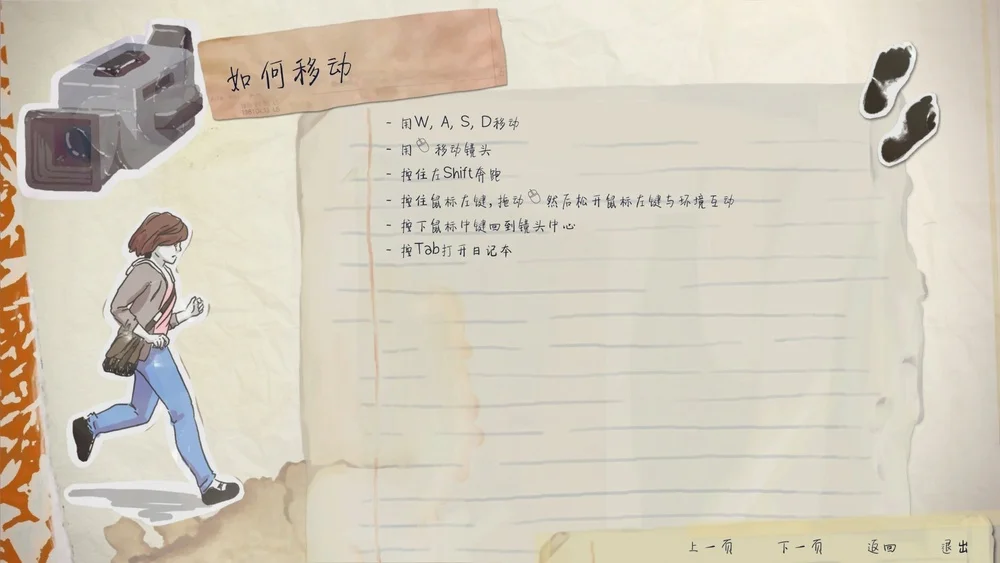 如何移动
- 用W, A, S, D移动
- 用 移动镜头
- 按住左Shift奔跑
- 按住鼠标左键, 拖动 然后松开鼠标左键与环境互动
- 按下鼠标中键回到镜头中心
- 按Tab打开日记本
上一页 下一页 返回 退出